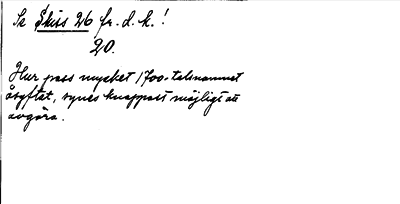 Se Skiss 26 fr. d. k.!
20.
Hur pass mycket 1700-talsnamnet
åsyftat, synes knappast möjligt att
avgöra.